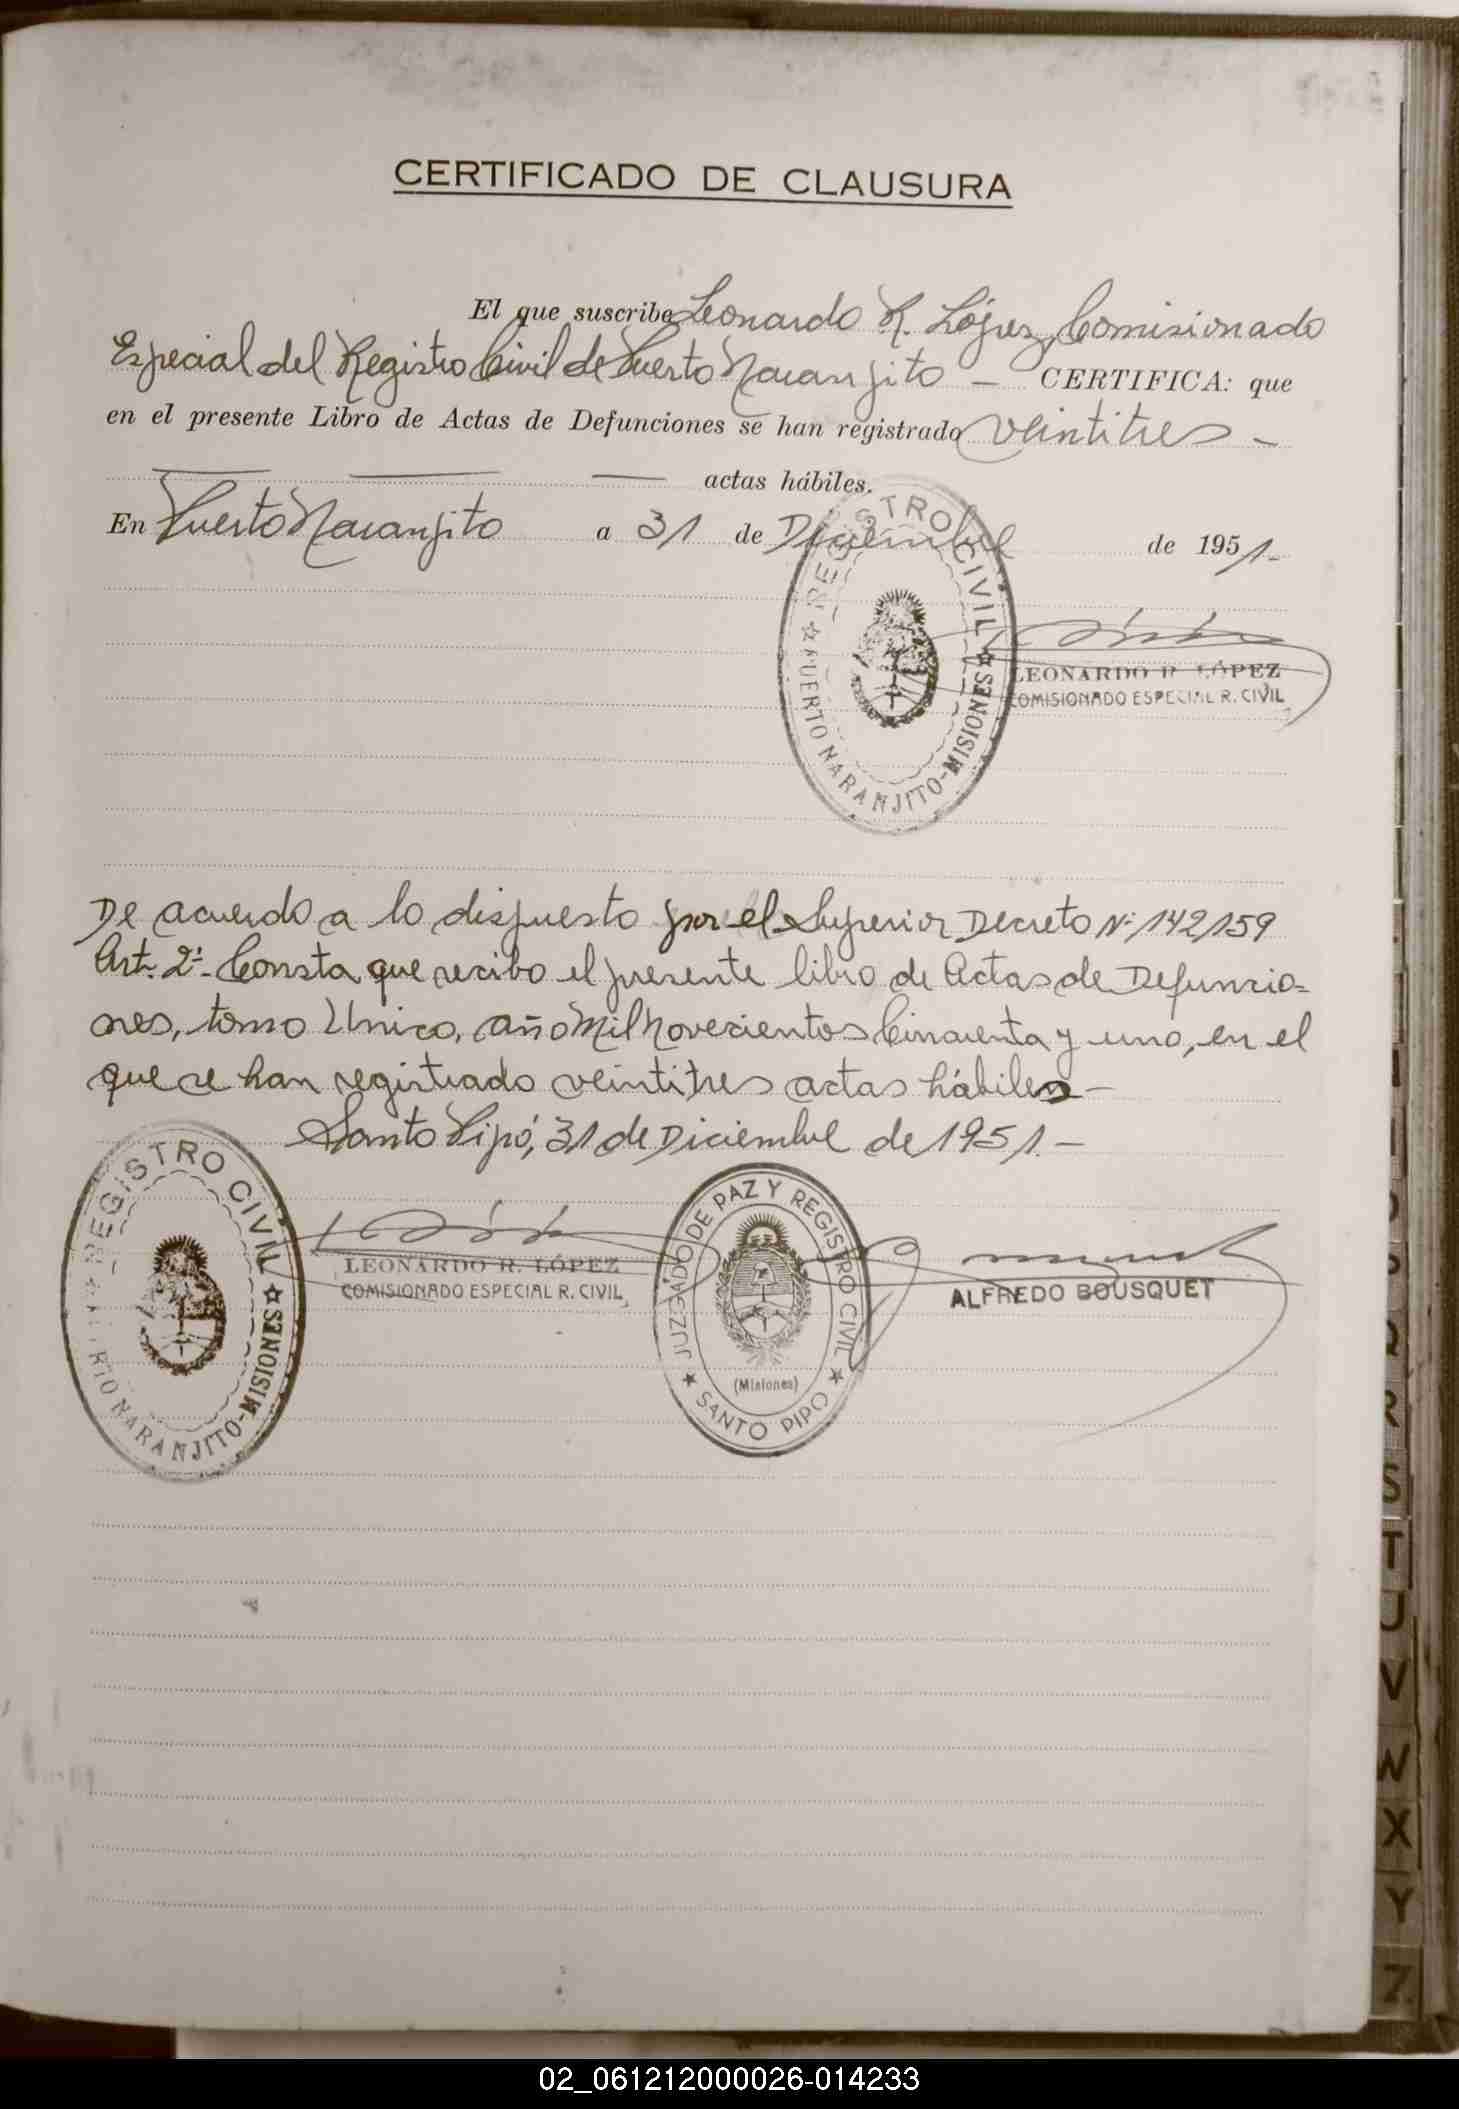 CERTIFICADO DE CLAUSURA
El que suscribe Leonardo R. López, Comisionado
Especial del Registro Civil de Puerto Naranjito — CERTIFICA: que
en el presente Libro de Actas de Defunciones se han registrado veintitres —
actas hábiles.
En Puerto Naranjito a 31 de Diciembre de 1951.-
REGISTRO CIVIL
PUERTO NARANJITO-MISIONES
LEONARDO R. LÓPEZ
COMISIONADO ESPECIAL R. CIVIL
De acuerdo a lo dispuesto por el Superior Decreto Nº 142159
Art. 2º- Consta que recibo el presente libro de Actas de Defuncio=
ones, tomo Unico, año Mil Novecientos Cincuenta y uno, en el
que se han registrado veintitres actas hábiles-
Santo Pipó, 31 de Diciembre de 1951.-
REGISTRO CIVIL
PUERTO NARANJITO-MISIONES
LEONARDO R. LÓPEZ
COMISIONADO ESPECIAL R. CIVIL
JUZGADO DE PAZ Y REGISTRO CIVIL
(Misiones)
SANTO PIPO
ALFREDO BOUSQUET
R
S
T
U
V
W
X
Y
Z
02_061212000026-014233